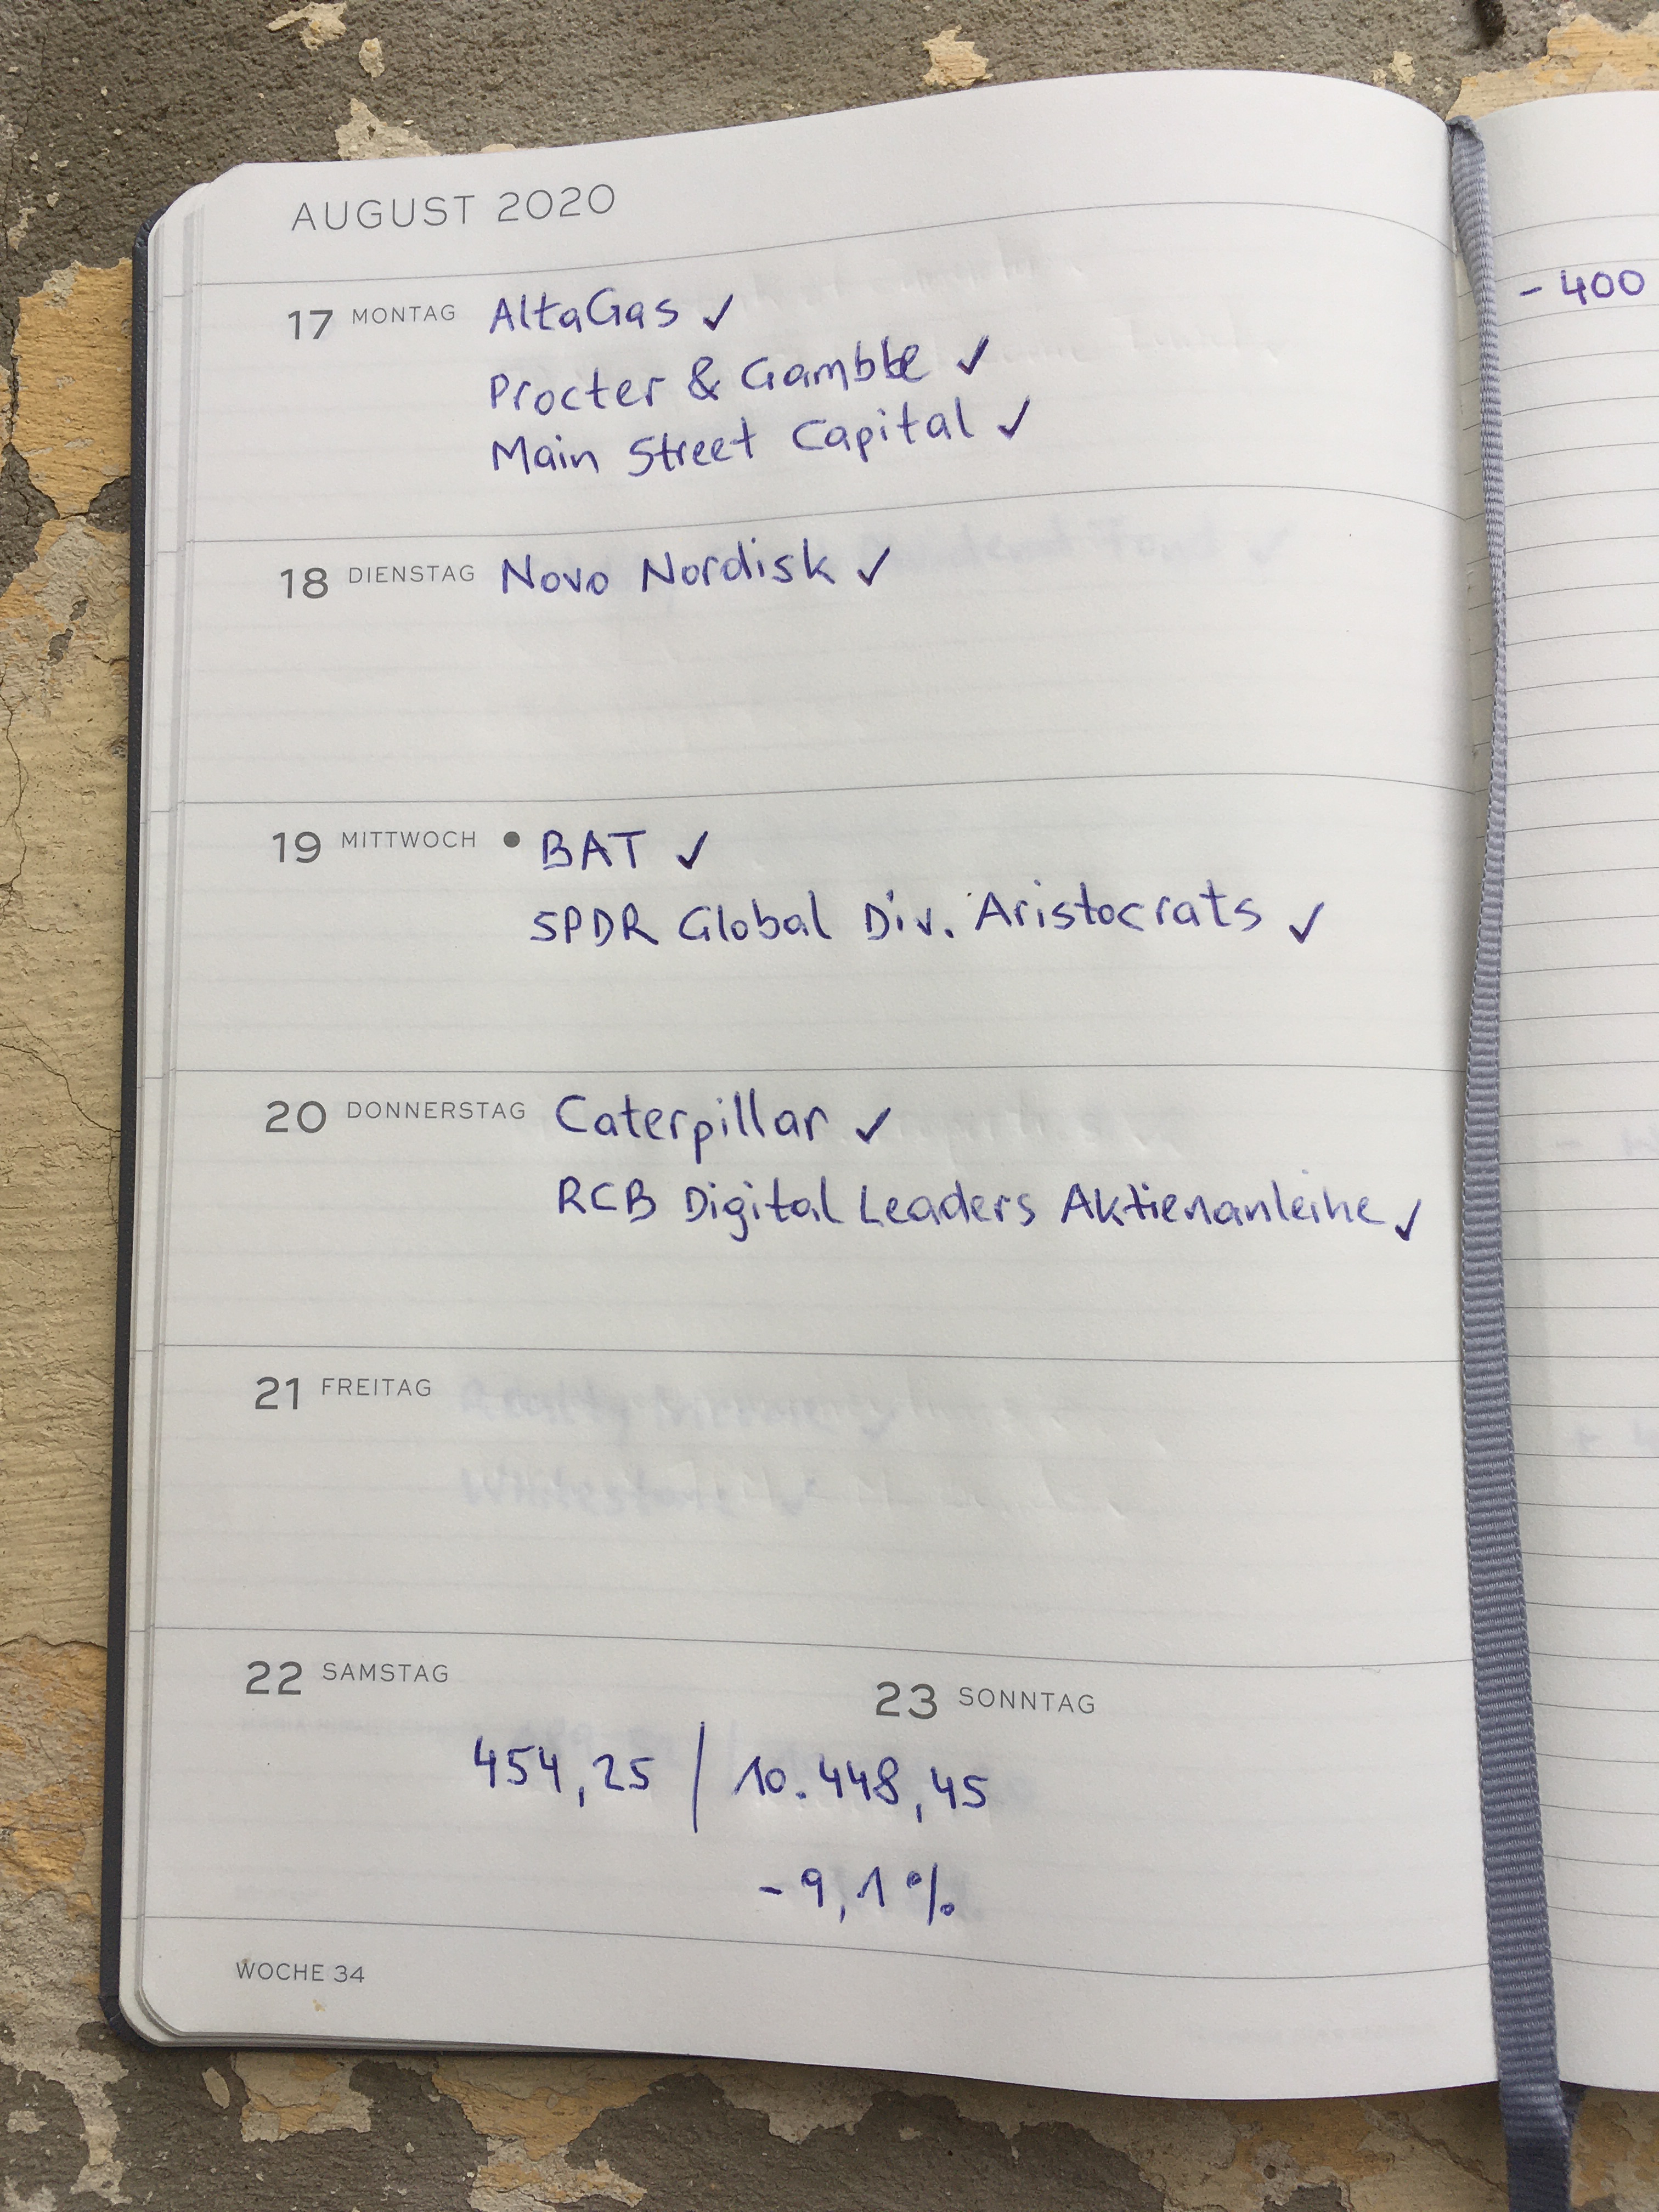 AUGUST 2020
17 MONTAG AltaGas ✓
Procter & Gamble ✓
Main Street Capital ✓
18 DIENSTAG Novo Nordisk ✓
19 MITTWOCH • BAT ✓
SPDR Global Div. Aristocrats ✓
20 DONNERSTAG Caterpillar ✓
RCB Digital Leaders Aktienanleihe ✓
21 FREITAG
22 SAMSTAG 23 SONNTAG
454,25 / 10.448,45
-9,1%
WOCHE 34
- 400